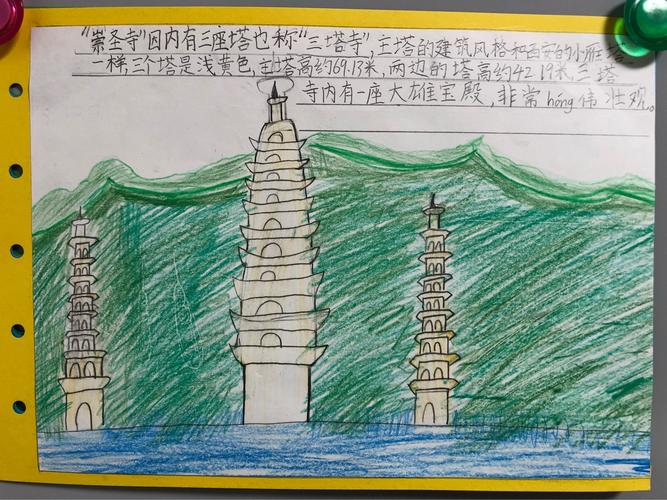 “崇圣寺”因内有三座塔也称“三塔寺”,主塔的建筑风格和西安的小雁塔
一样,三个塔是浅黄色,主塔高约69.13米,两边的塔高约42.19米,三塔
寺内有一座大雄宝殿,非常hóng伟壮观。